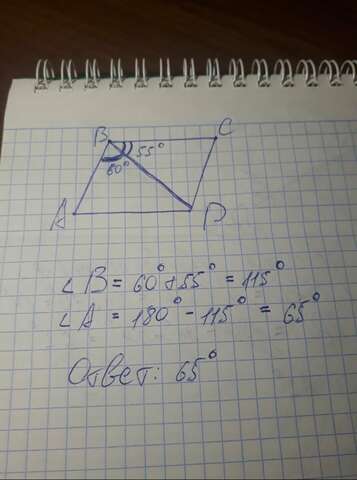 B C
55°
60°
A D
∠B = 60° + 55° = 115°
∠A = 180° - 115° = 65°
Ответ: 65°